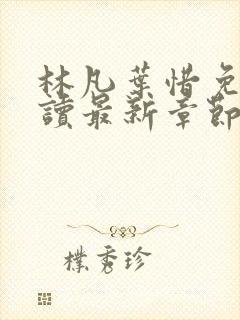 林凡葉惜免
讀最新章節
樸秀珍